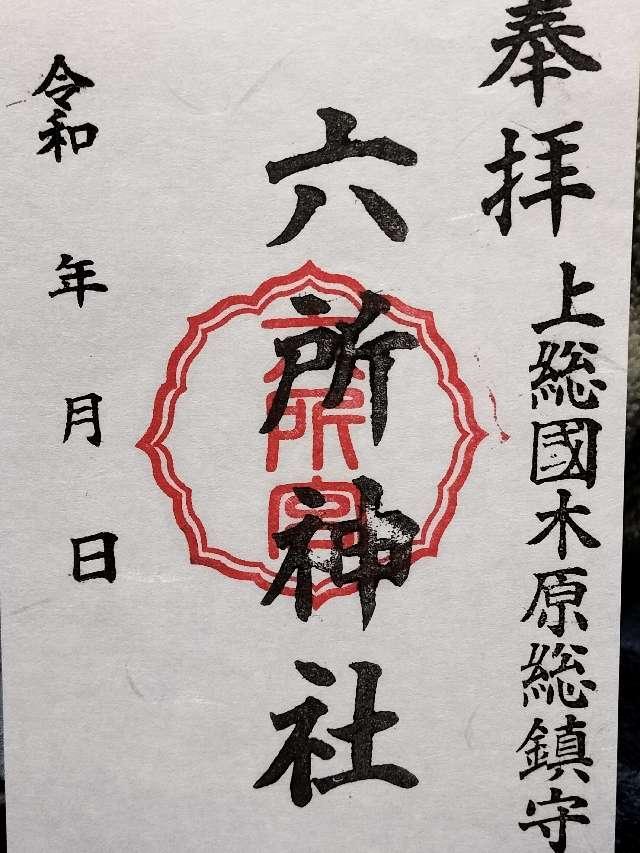 奉拝
上総國木原総鎮守
六所神社
六所宮
令和 年 月 日